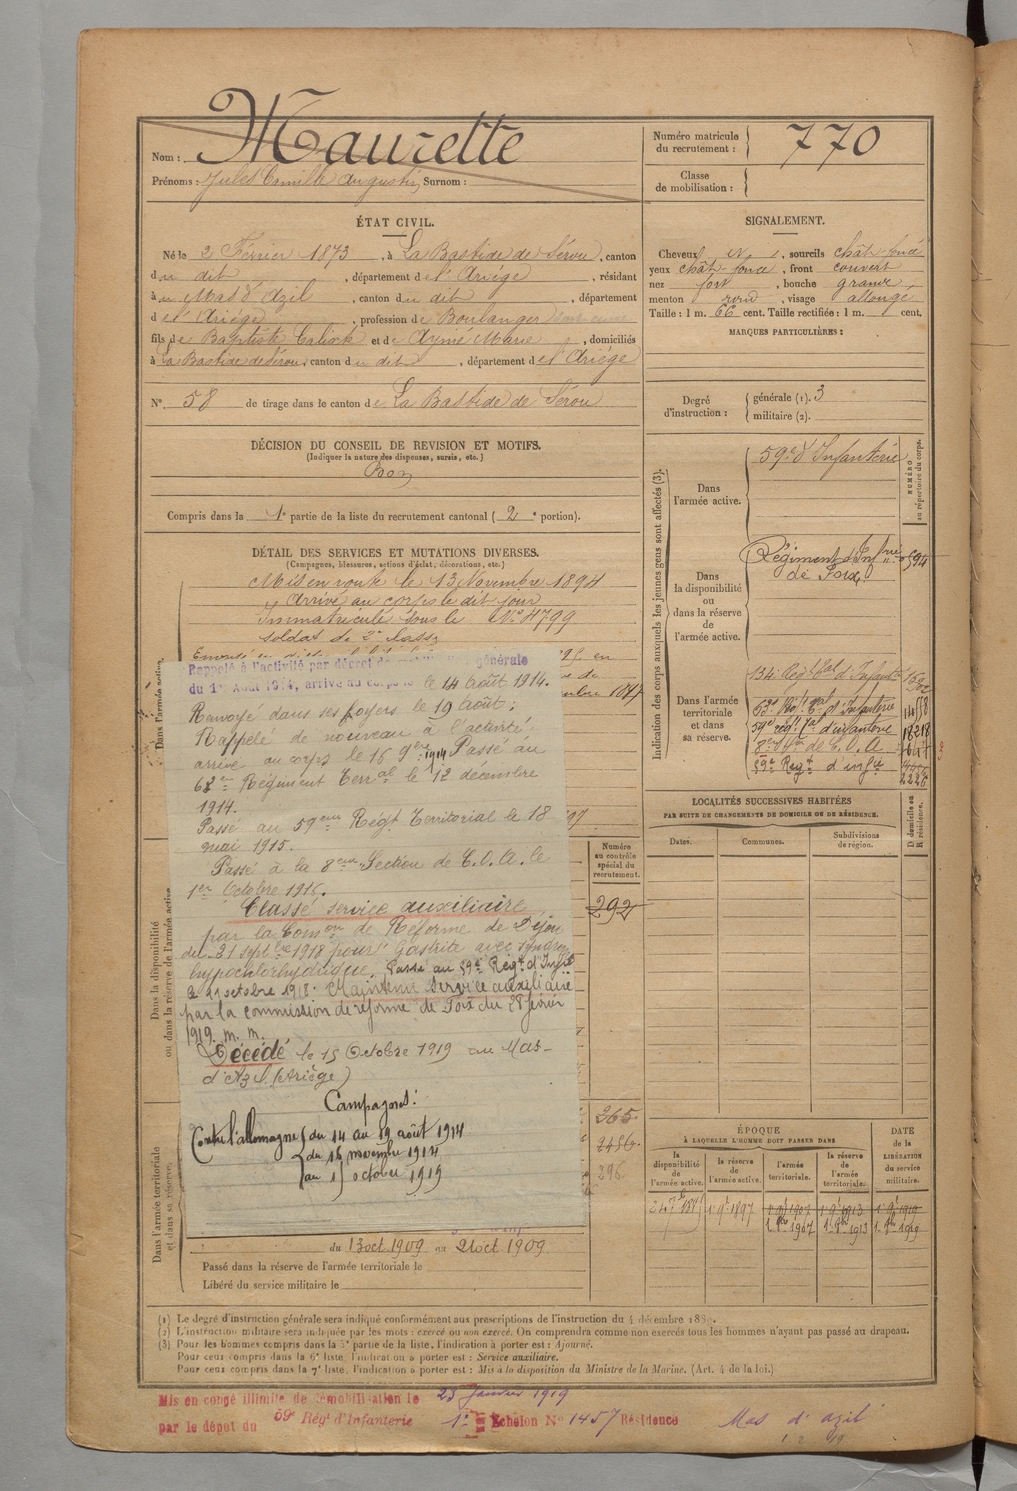 Nom : Maurette
Prénoms : Jules Camille Augustin, Surnom :
Numéro matricule du recrutement : 770
Classe de mobilisation :
ÉTAT CIVIL.
Né le 2 Février 1873, à La Bastide de Sérou, canton
du dit, département de l'Ariège, résidant
à u Mas d'Azil, canton du dit, département
de l'Ariège, profession de Boulanger
fils de Baptiste et de Ayme Marie, domiciliés
à La Bastide de Sérou, canton du dit, département de l'Ariège
N° 58 de tirage dans le canton de La Bastide de Sérou
SIGNALEMENT.
Cheveux N, sourcils chât. foncé
yeux chât. foncé, front couvert
nez fort, bouche grande
menton rond, visage allongé
Taille : 1 m. 66 cent. Taille rectifiée : 1 m. cent.
MARQUES PARTICULIÈRES :
Degré d'instruction : générale (1). 3
militaire (2).
DÉCISION DU CONSEIL DE REVISION ET MOTIFS.
(Indiquer la nature des dispenses, sursis, etc.)
Bon
Compris dans la 1e partie de la liste du recrutement cantonal (2e portion).
DÉTAIL DES SERVICES ET MUTATIONS DIVERSES.
(Campagnes, blessures, actions d'éclat, décorations, etc.)
Mis en route le 13 Novembre 1894
Arrivé au corps le dit jour
Immatriculé sous le N° 4799
soldat de 2e classe
Rappelé à l'activité par décret de mobilisation générale
du 1er Août 1914, arrivé au corps le 14 Août 1914.
Renvoyé dans ses foyers le 19 Août ;
Rappelé de nouveau à l'activité
arrivé au corps le 16 9bre 1914 Passé au
63e Régiment Terral le 12 décembre
1914.
Passé au 59eme Régt Territorial le 18
mai 1915.
Passé à la 8eme Section de C.O.A. le
1er Octobre 1916.
Classé service auxiliaire
par la Comon de Réforme de Dijon
du 21 septbre 1918 pour Gastrite avec syndrome
hypochlorhydrique. Passé au 59e Régt d'Infie
le 21 octobre 1918. Maintenu Service auxiliaire
par la commission de réforme de Foix du 28 février
1919. m. m.
Décédé le 15 Octobre 1919 au Mas-
d'Azil (Ariège)
Campagnes :
Contre l'allemagne du 14 au 19 août 1914
du 16 novembre 1914
au 15 octobre 1919
du 13 oct. 1909 au 21 oct. 1909.
Passé dans la réserve de l'armée territoriale le
Libéré du service militaire le
Dans l'armée active.
Dans la disponibilité ou dans la réserve de l'armée active
Dans l'armée territoriale et dans sa réserve.
Numéro au contrôle spécial du recrutement.
292
265.
296.
Indication des corps auxquels les jeunes gens sont affectés (3).
NUMÉRO au répertoire du corps.
Dans l'armée active. 59e d'Infanterie
Dans la disponibilité ou dans la réserve de l'armée active.
Régiment d'Infrie de Foix
Dans l'armée territoriale et dans sa réserve.
134e Régt tal d'Infantie
63e Régt tal d'Infanterie
59e régt tal d'infanterie
8e Son de C.O.A
59e Régt d'infie
LOCALITÉS SUCCESSIVES HABITÉES
PAR SUITE DE CHANGEMENTS DE DOMICILE OU DE RÉSIDENCE.
Dates. Communes. Subdivisions de région. D domicile ou R résidence.
ÉPOQUE
À LAQUELLE L'HOMME DOIT PASSER DANS
DATE de la LIBÉRATION du service militaire.
la disponibilité de l'armée active. la réserve de l'armée active. l'armée territoriale. la réserve de l'armée territoriale.
1 9bre 1897
1. 8bre 1907 1. 8bre 1913 1. 8bre 1919
(1) Le degré d'instruction générale sera indiqué conformément aux prescriptions de l'instruction du 4 décembre 1889.
(2) L'instruction militaire sera indiquée par les mots : exercé ou non exercé. On comprendra comme non exercés tous les hommes n'ayant pas passé au drapeau.
(3) Pour les hommes compris dans la 5e partie de la liste, l'indication à porter est : Ajourné.
Pour ceux compris dans la 6e liste, l'indication à porter est : Service auxiliaire.
Pour ceux compris dans la 7e liste, l'indication à porter est : Mis à la disposition du Ministre de la Marine. (Art. 4 de la loi.)
Mis en congé illimité de démobilisation le 23 Janvier 1919
par le dépôt du 59e Régt d'Infanterie 1er Echelon N° 1457 Résidence Mas d'azil